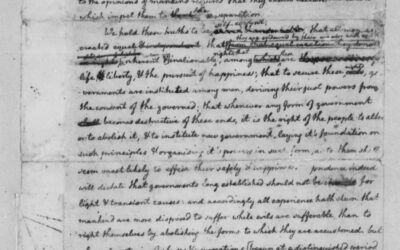 to the opinions of mankind requires that they should declare the causes
which impel them to the separation.
We hold these truths to be self-evident, that all men are
created equal & independent; that from that equal creation they derive
rights inherent & inalienable, among which are the
life, & liberty, & the pursuit of happiness; that to secure these ends, go
vernments are instituted among men, deriving their just powers from
the consent of the governed; that whenever any form of government
shall becomes destructive of these ends, it is the right of the people to alter
or to abolish it, & to institute new government, laying it's foundation on
such principles & organising it's powers in such form, as to them shall
seem most likely to effect their safety & happiness. prudence indeed
will dictate that governments long established should not be changed for
light & transient causes: and accordingly all experience hath shewn that
mankind are more disposed to suffer while evils are sufferable, than to
right themselves by abolishing the forms to which they are accustomed. but
when a long train of abuses & usurpations, begun at a distinguished period